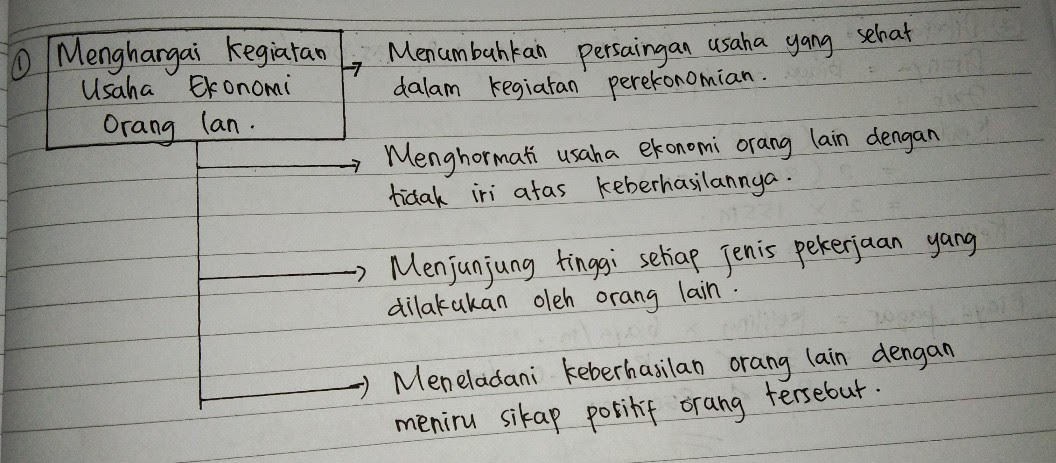 ① Menghargai kegiatan
Usaha Ekonomi
Orang lan.
Menumbuhkan persaingan usaha yang sehat
dalam kegiatan perekonomian.
Menghormati usaha ekonomi orang lain dengan
tidak iri atas keberhasilannya.
Menjunjung tinggi setiap jenis pekerjaan yang
dilakukan oleh orang lain.
Meneladani keberhasilan orang lain dengan
meniru sikap positif orang tersebut.